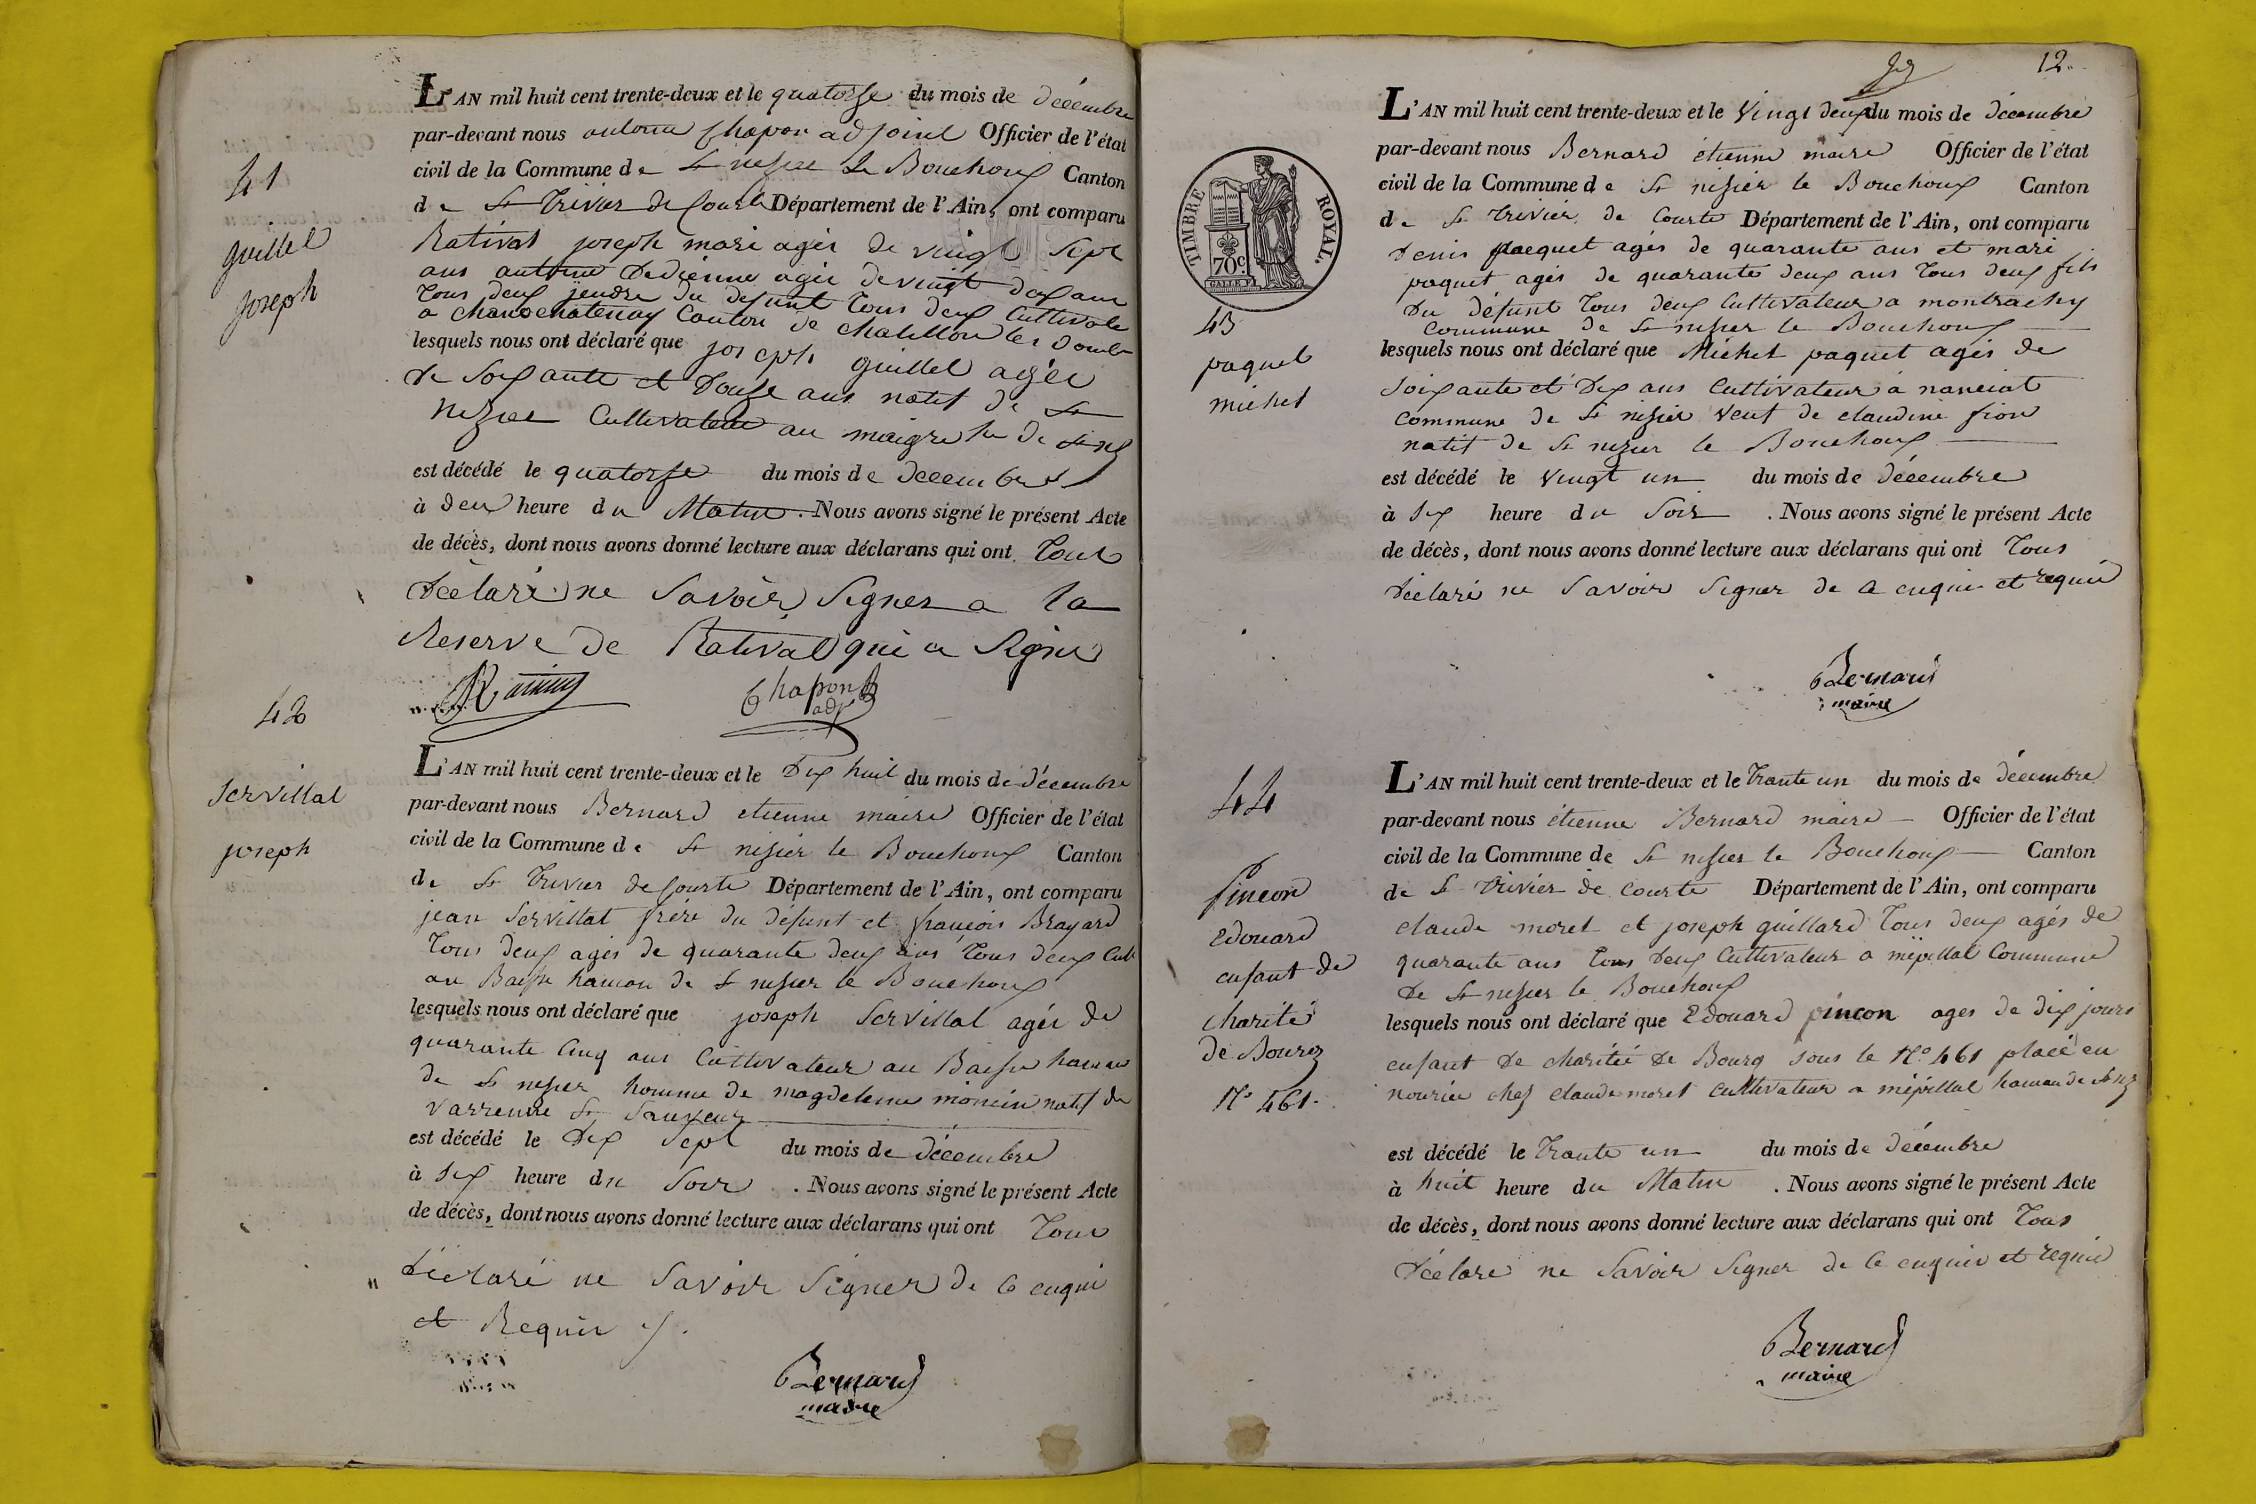 41
guillel
joseph
L'AN mil huit cent trente-deux et le quatorse du mois de décembre
par-devant nous antoine Chapon adjoint Officier de l'état
civil de la Commune de St nisier Le Bouchoux Canton
de St Trivier de Courte Département de l'Ain, ont comparu
Rativat joseph mari agée de vingt sept
ans antoine Dedienne agée de vingt dex ans
Tous deux jendre du defunt Tous deux Cultivate
a Chanoz chatenay Canton de chatillon les Dombe
lesquels nous ont déclaré que joseph guillel agée
de soixante et Douze ans natif de St
nezier Cultivateur au maigre de St nz
est décédé le quatorse du mois de décembre
à deux heure du Matin. Nous avons signé le présent Acte
de décès, dont nous avons donné lecture aux déclarans qui ont Tous
Déclaré ne Savoir Signer a la
Reserve de Rativat qui a Signé
Chapon
adj
42
Servillat
joseph
L'AN mil huit cent trente-deux et le Dix huit du mois de décembre
par-devant nous Bernard etienne maire Officier de l'état
civil de la Commune de St nisier le Bouchoux Canton
de St Trivier de Courte Département de l'Ain, ont comparu
jean Servillat frère du défunt et françois Brayard
Tous deux agés de quarante deux ans Tous deux Cult
au Baisse hamau de St nisier le Bouchoux
lesquels nous ont déclaré que joseph Servillat agée de
quarante Cinq ans Cultivateur au Baisse hamau
de St nisier homme de magdelene moncin natif de
Varrenne St Sauveur
est décédé le Dix Sept du mois de décembre
à Six heure du Soir. Nous avons signé le présent Acte
de décès, dont nous avons donné lecture aux déclarans qui ont Tous
déclaré ne Savoir Signer de Ce enqui
et Requir
Bernard
maire
12.
TIMBRE ROYAL.
70c.
43
paquet
michel
L'AN mil huit cent trente-deux et le Vingt deux du mois de décembre
par-devant nous Bernard étienne maire Officier de l'état
civil de la Commune de St nisier le Bouchoux Canton
de St Trivier de Courte Département de l'Ain, ont comparu
Denis pacquet agés de quarante ans et mari
paquet agés de quarante deux ans Tous deux fils
Du défunt Tous deux Cultivateur a montrachy
Commune de St nisier le Bouchoux
lesquels nous ont déclaré que Michel paquet agés de
soixante et Dix ans Cultivateur a nanciat
Commune de St nisier veuf de claudine fion
natif de St nezier le Bouchoux
est décédé le Vingt un du mois de décembre
à Six heure du Soir. Nous avons signé le présent Acte
de décès, dont nous avons donné lecture aux déclarans qui ont Tous
Déclaré ne Savoir Signer de Ce enqui et requie
Bernard
maire
44
pincon
Edouard
enfant de
charité
de Bourg
No 461.
L'AN mil huit cent trente-deux et le Trante un du mois de décembre
par-devant nous étienne Bernard maire Officier de l'état
civil de la Commune de St nisier le Bouchoux Canton
de St Trivier de Courte Département de l'Ain, ont comparu
claude moret et joseph guillard Tous deux agés de
quarante ans Tous deux Cultivateur a mépillat Commune
de St nisier le Bouchoux
lesquels nous ont déclaré que Edouard pincon ages de dix jours
enfant de charitié de Bourg sous le No 461 placé en
nouriée chez claude moret Cultivateur a mépillat hamau de St nz
est décédé le Trante un du mois de décembre
à huit heure du Matin. Nous avons signé le présent Acte
de décès, dont nous avons donné lecture aux déclarans qui ont Tous
Déclaré ne Savoir Signer de Ce enquir et requie
Bernard
maire